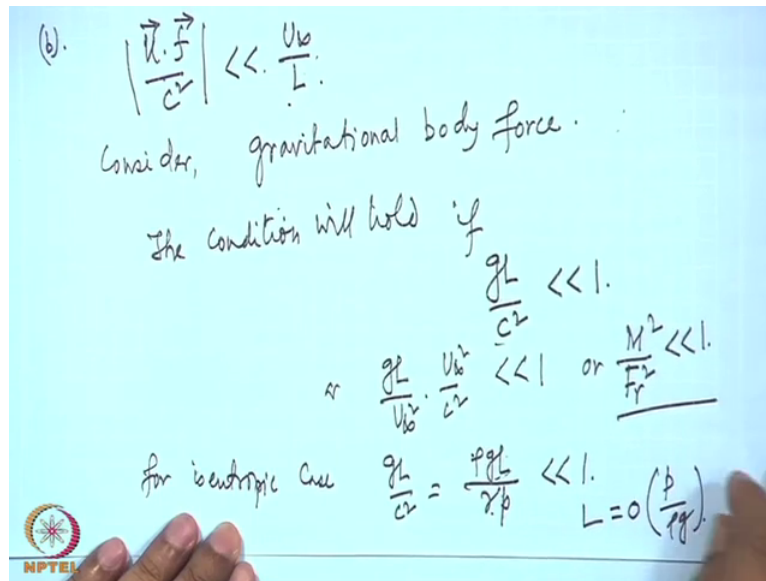 (b). |u⃗.f⃗/c²| << U∞/L.
Consider, gravitational body force.
The condition will hold if
gL/c² << 1.
or gL/U∞² . U∞²/c² << 1 or M²/Fr² << 1.
For isentropic Case gL/c² = ρgL/γp << 1. L = O(p/ρg).
NPTEL